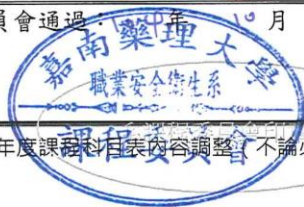 員會通過：年 月
嘉南藥理大學
職業安全衛生系
課程委員會
年度課程科目表內容調整，不論